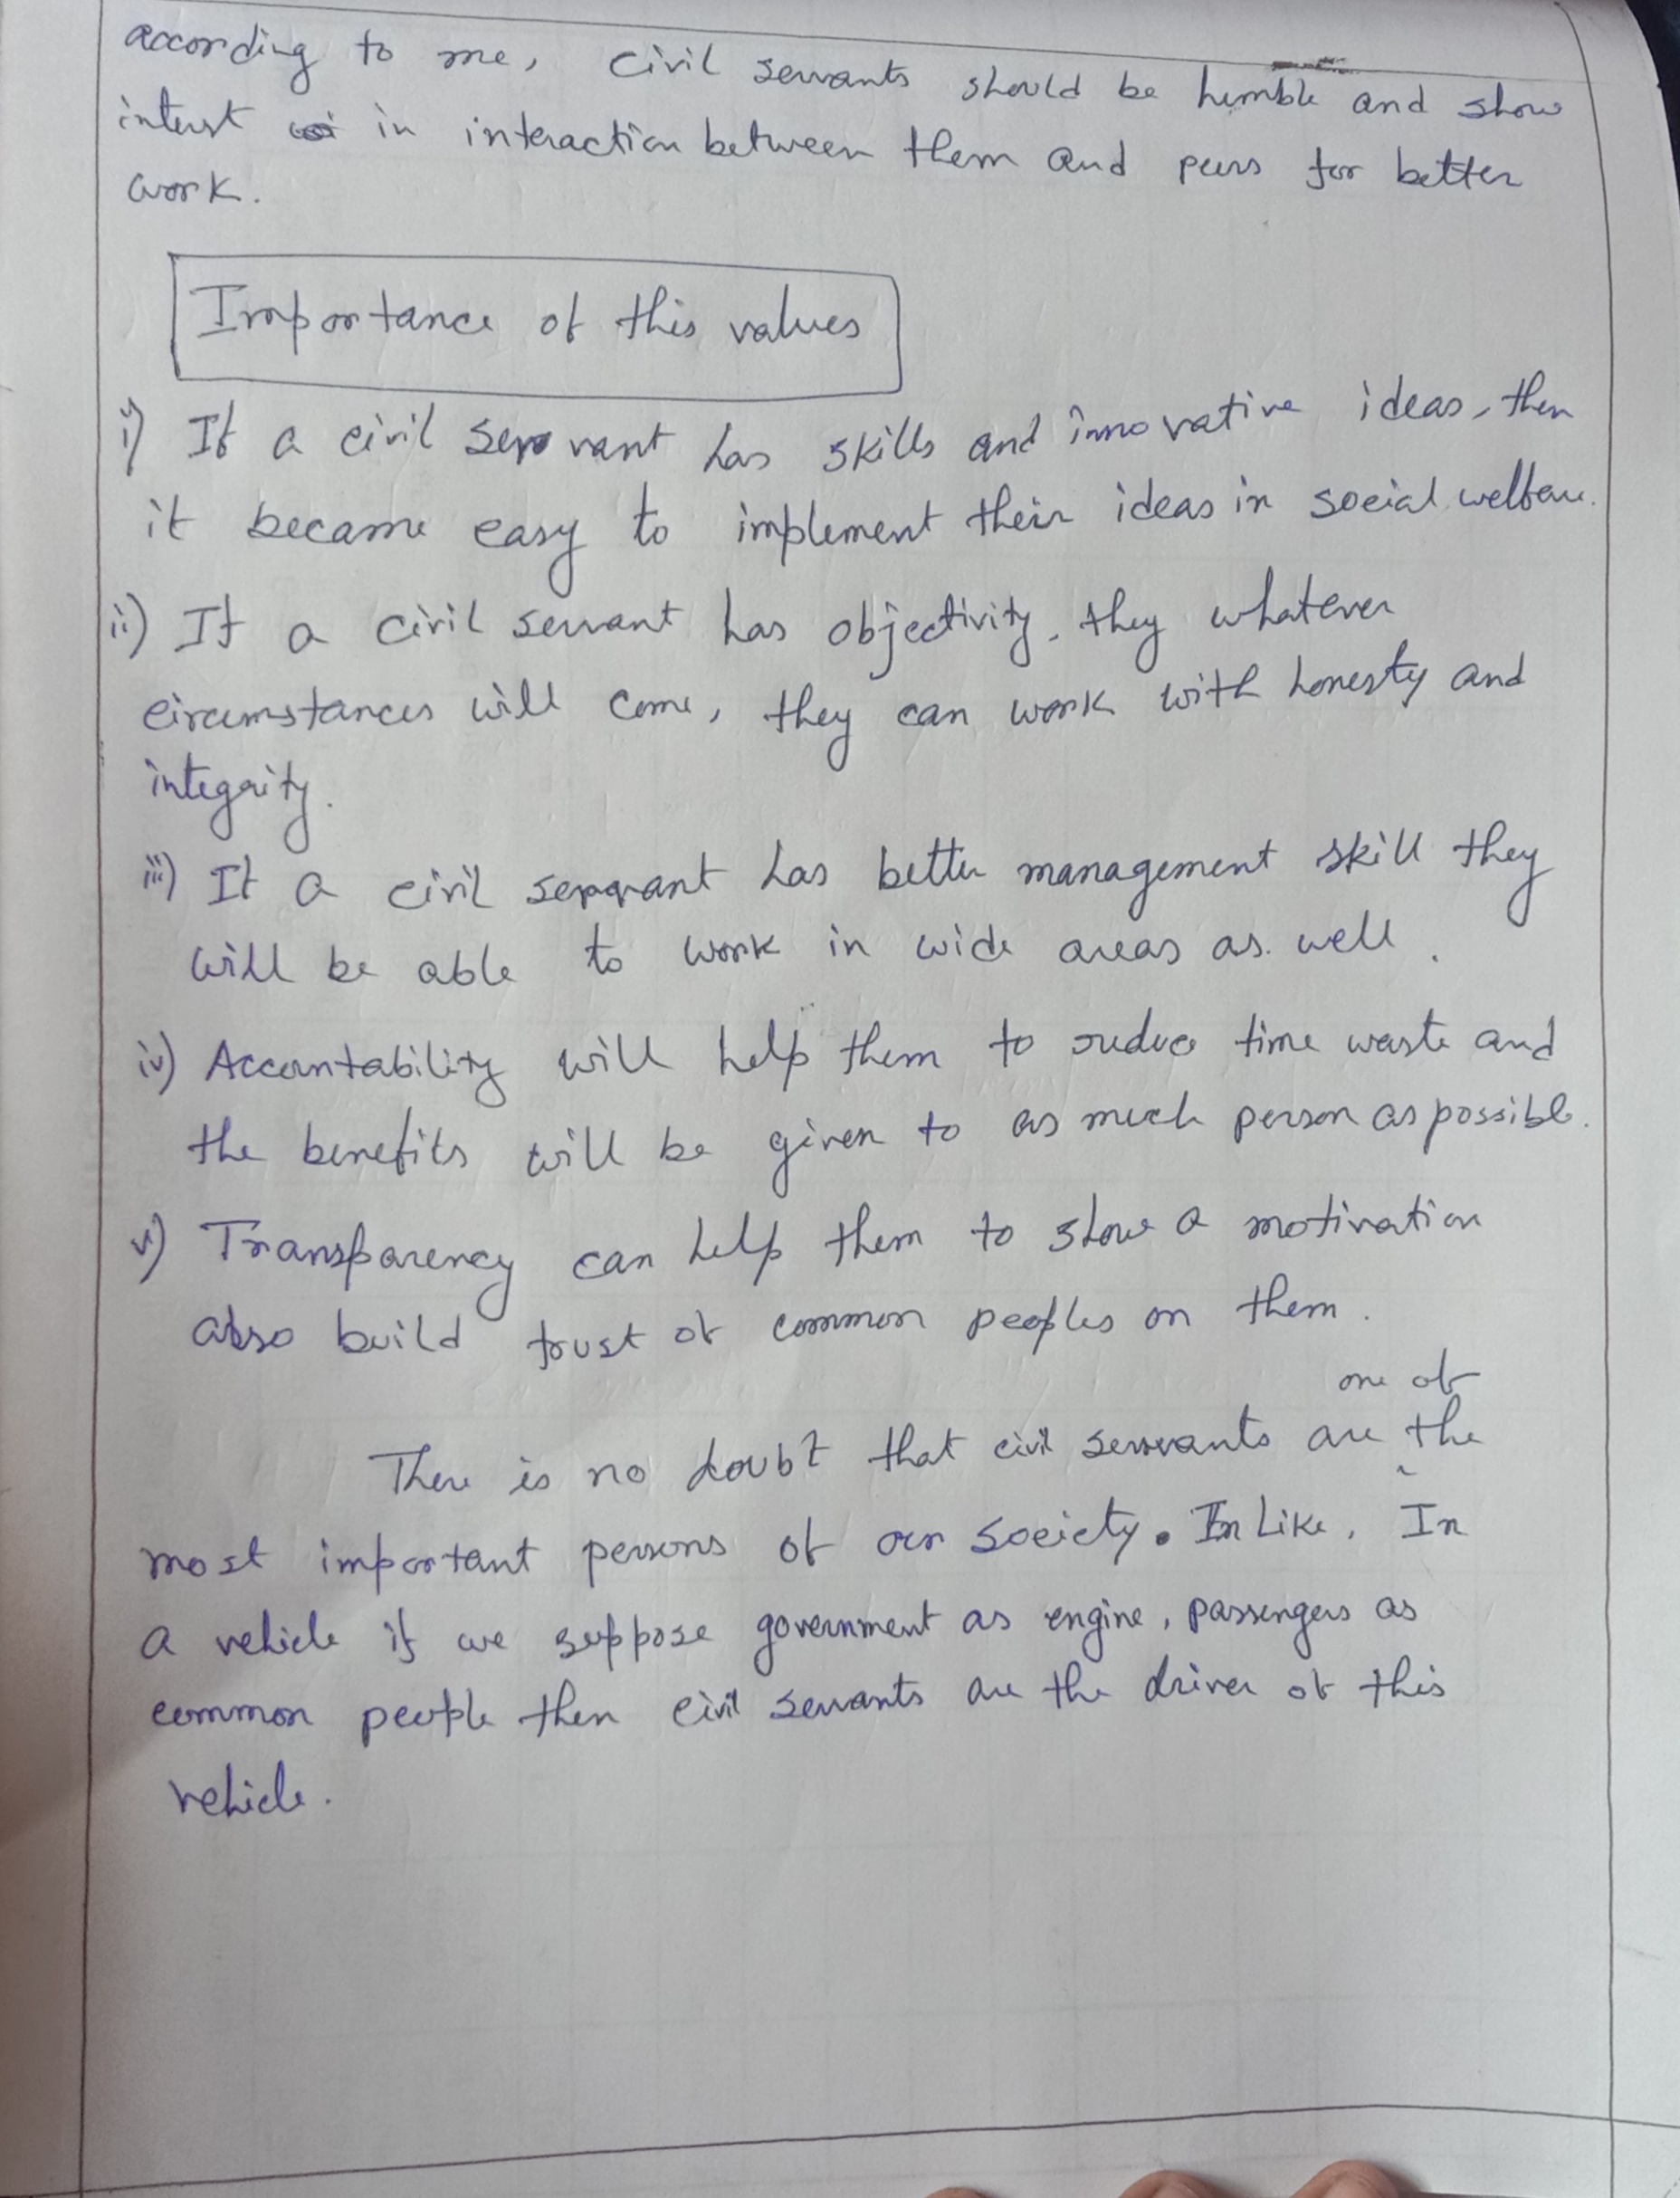 according to me, civil servants should be humble and show
interst in interaction between them and peers for better
work.
Importance of this values
i) If a civil servant has skills and innovative ideas, then
it became easy to implement their ideas in social welfare.
ii) If a civil servant has objectivity, they whatever
circumstances will come, they can work with honesty and
integrity.
iii) If a civil servant has better management skill they
will be able to work in wide areas as well.
iv) Accountability will help them to reduce time waste and
the benefits will be given to as much person as possible.
v) Transparency can help them to show a motivation
also build trust of common peoples on them.
one of
There is no doubt that civil servants are the
most important persons of our society. In Like, In
a vehicle if we suppose government as engine, passengers as
common people then civil servants are the driver of this
vehicle.